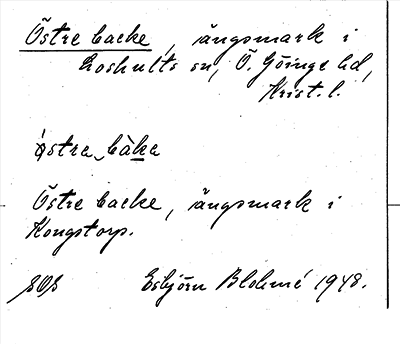 Östre backe, ängsmark i
Loshults sn, Ö. Göinge hd,
Krist. l.
östra bàke
Östre backe, ängsmark i
Kongstorp.
Esbjörn Blohmé 1948.